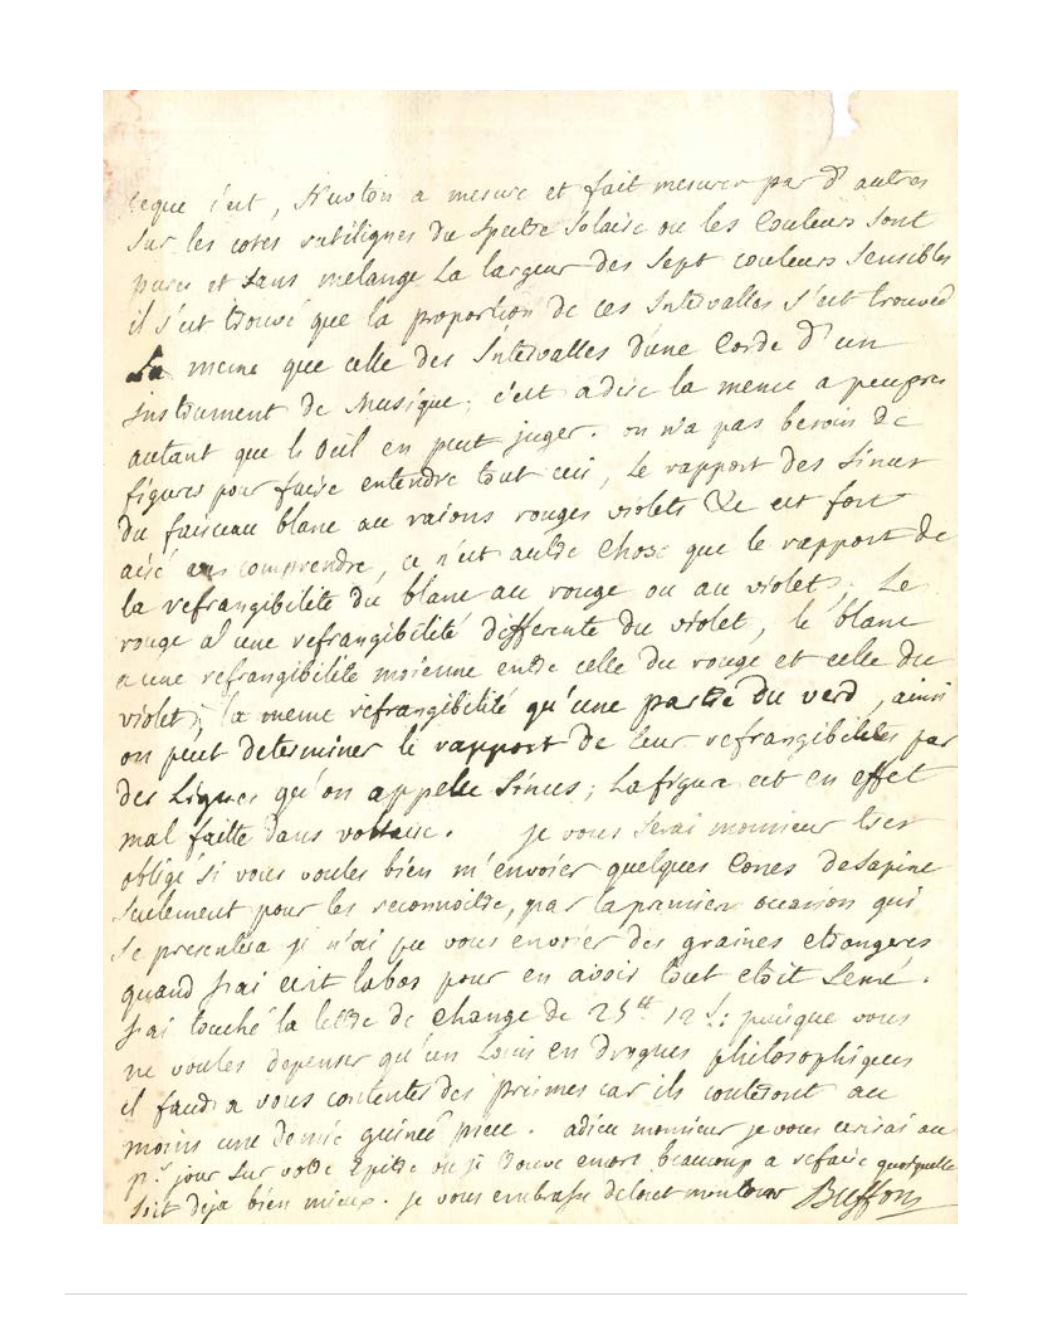 ceque c'est, Newton a mesuré et fait mesurer par d'autres
sur les cotés rectilignes du spectre solaire ou les Couleurs sont
pures et sans melange La largeur des sept couleurs sensibles
il s'est trouvé que la proportion de ces Intervalles s'est trouvée
La meme que celle des Intervalles d'une Corde d'un
instrument de Musique; c'est adire la meme a peupres
autant que l'Oeil en peut juger. on n'a pas besoin de
figures pour faire entendre tout ceci, Le rapport des sinus
du faisceau blanc au raions rouges violets &c est fort
aisé a comprendre, ce n'est autre Chose que le rapport de
la refrangibilité du blanc au rouge ou au violet; Le
rouge a une refrangibilité differente du violet, le blanc
a une refrangibilité moienne entre celle du rouge et celle du
violet; la meme refrangibilité qu'une partie du verd, ainsi
on peut determiner le rapport de leur refrangibilités par
des Lignes qu'on appelle Sinus; La figure est en effet
mal faitte dans voltaire. je vous serai monsieur bien
obligé si vous voules bien m'envoier quelques Cones desapins
seulement pour les reconnoitre, par lapremiere occasion qui
se presentera je n'ai pu vous envoier des graines etrangeres
quand j'ai ecrit labas pour en avoir tout etoit semé.
j'ai touché la lettre de change de 25tt 12 s.: puisque vous
ne voules depenser qu'un Louis en drogues philosophiques
il faudra vous contenter des prismes car ils couteront au
moins une demie guinée piece. adieu monsieur je vous ecrirai au
pr. jour sur votre Epitre ou je trouve encore beaucoup a refaire quoiquelle
soit deja bien mieux. je vous embrasse detout moncoeur Buffon